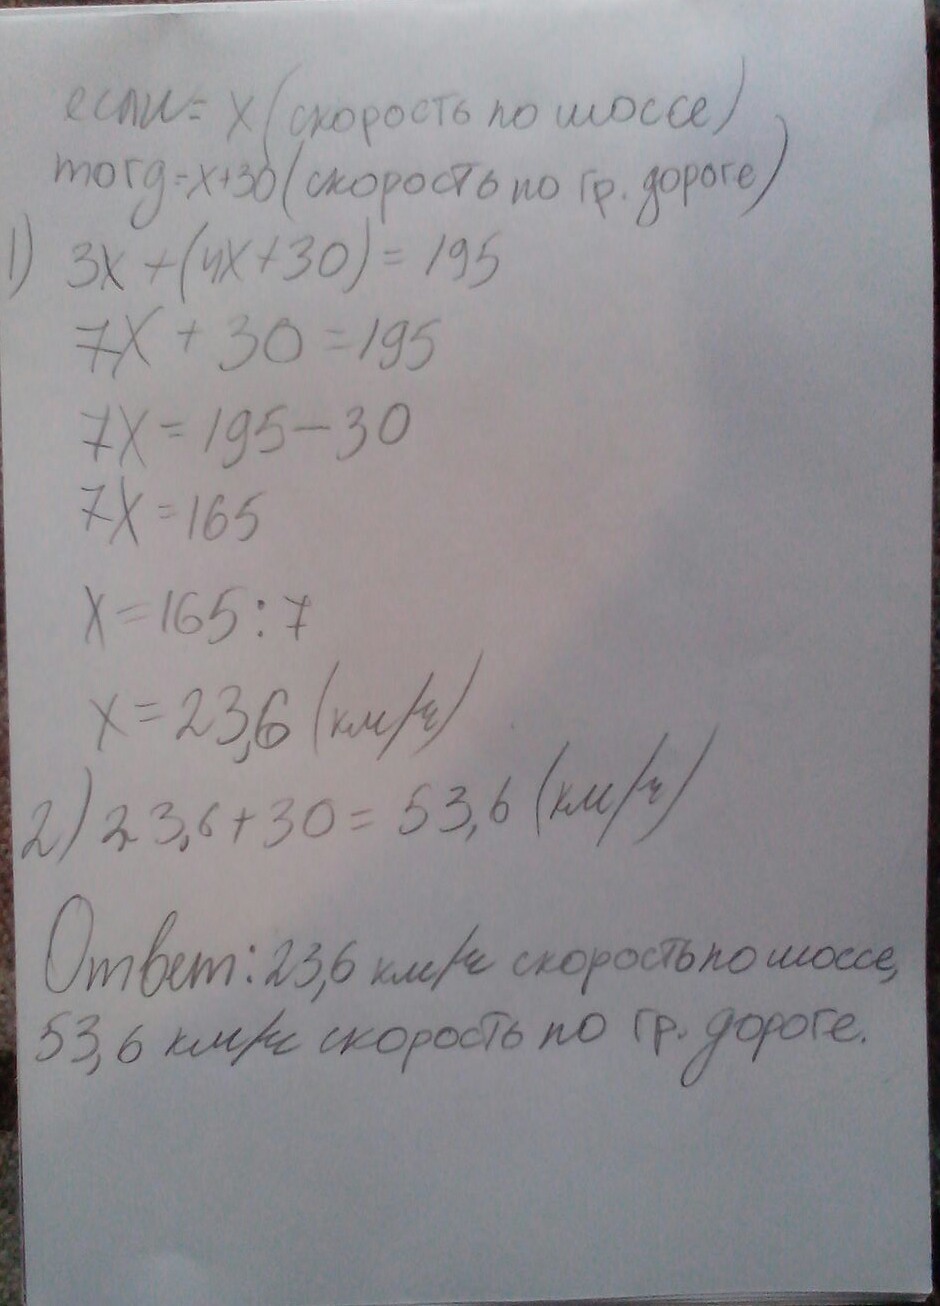 если= x (скорость по шоссе)
тогд=x+30(скорость по гр. дороге)
1) 3x +(4x+30)= 195
7x + 30 =195
7x = 195-30
7x =165
x=165:7
x=23,6 (км/ч)
2) 23,6+30= 53,6 (км/ч)
Ответ: 23,6 км/ч скорость по шоссе,
53,6 км/ч скорость по гр. дороге.